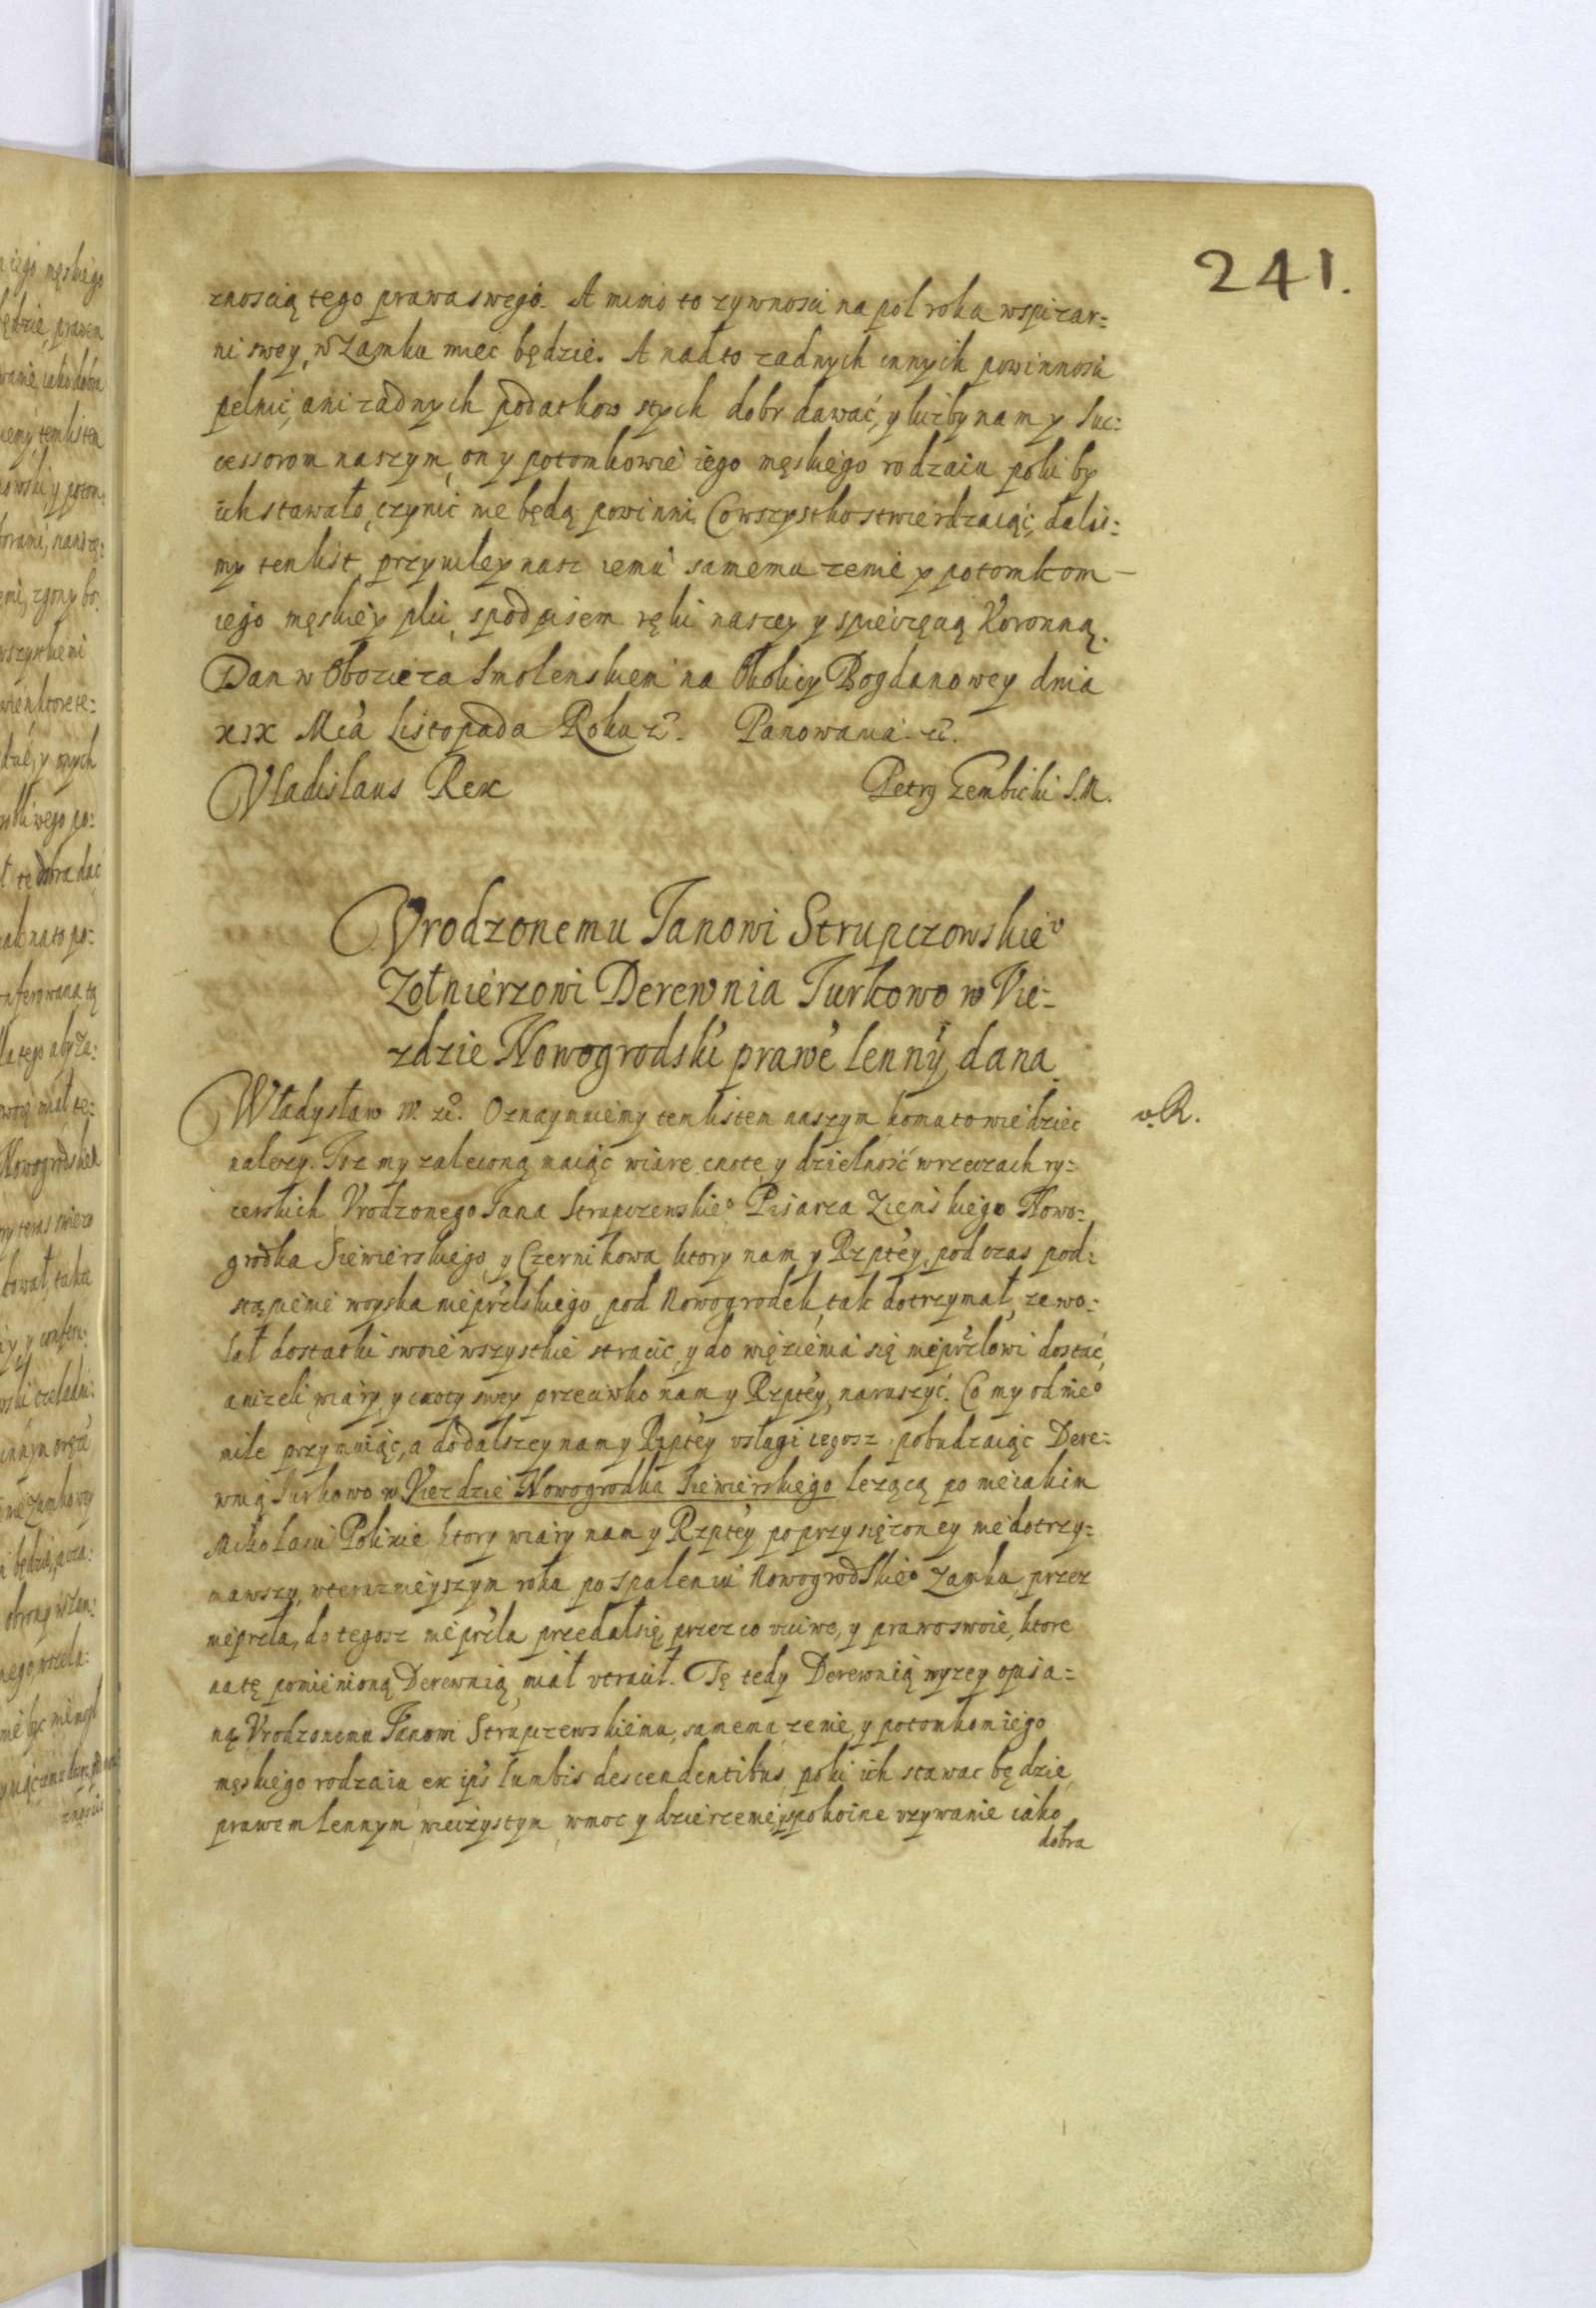 241.
znoscią tego prawa swego. A mimo to zywnosci na pol roku wspizar=
ni swey, w Zamku miec będzie. A nadto zadnych innych powinnosci
pełnic, ani zadnych podatkow stych dobr dawać, y liczby nam y Suc=
cessorom naszym, on y potomkowie iego męskiego rodzaiu poki by
ich stawało, czynić nie będą powinni. Co wszystko stwierdzaiąc, dalis=
my ten list przywiley nasz iemu samemu zenie y potomkom –
iego męskiey płci, spodpisem ręki naszey y spieczęcią Koronną.
Dan w Obozie za Smolenskiem na Okolicy Bogdanowey dnia
xix Mca Listopada Roku etc. Panowania etc.
Vladislaus Rex Petrq Gembicki S.M.
Vrodzonemu Janowi Strupczowskieo
Zołnierzowi Derewnia Jurkowo w Vie=
zdzie Nowogrodski prawe lenny dana
Władysław IV. etc. Oznaymuiemy tem listem naszym komu to wiedziec
v.R.
nalezy. Isz my zaleconą maiąc wiare cnotę y dzielność w rzeczach ry=
cerskich Vrodzonego Jana Strupczewskieo Pisarza Ziemskiego Nowo=
grodka Siewierskiego, y Czernihowa ktory nam y Rzptey, pod czas pod=
stąpienia woyska nieprzlskiego pod Nowogrodek, tak dotrzymał, ze wo=
lał dostatki swoie wszystkie stracic, y do więzienia się nieprzlowi dostać,
anizeli wiary y cnoty swey przeciwko nam y Rzptey, naruszyć. Co my od nieo
mile przymuiąc, a do dalszey nam y Rzptey vsługi iegosz pobudzaiąc Dere=
wnią Jurkowo w Viezdzie Nowogrodka Siewierskiego lezącą po nieiakim
Mikołaiu Polixie ktory wiary nam y Rzptey poprzysięzoney nie dotrzy=
mawszy, w terazmieyszym roku po spaleniu Nowogrodskieo Zamku przez
nieprzla, do tegosz nieprzla przedał się przez co vcciwe, y prawo swoie, ktore
na tę pomienioną Derewnią miał vtracił. Tę tedy Derewnią wyzey opisa=
ną Vrodzonemu Janowi Strupczewskiemu, samemu zenie, y potomkom iego
męskiego rodzaiu ex ips lumbis descendentibus, poki ich stawac będzie
prawem lennym wieczystym w moc y dzierzenie, y spokoine vzywanie iako
dobra